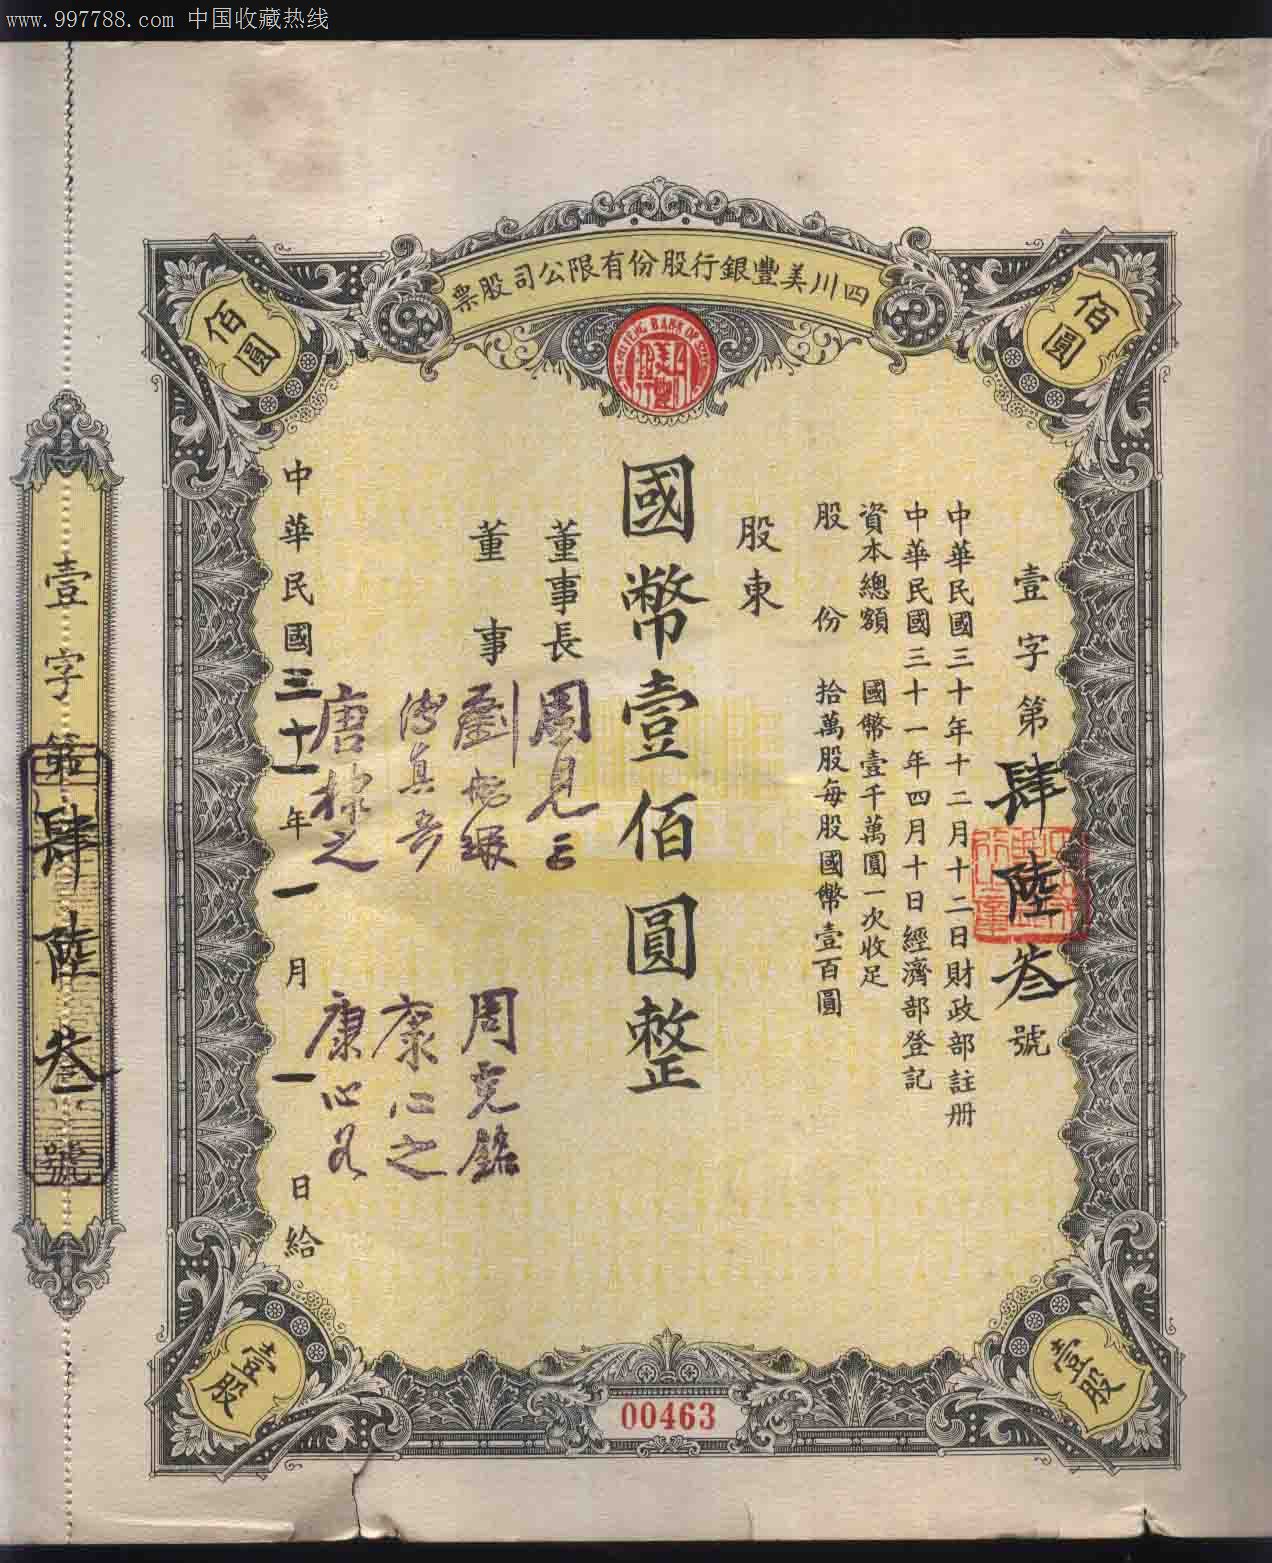 www.997788.com 中国收藏热线
四川美豐銀行股份有限公司股票
佰圓
佰圓
壹字第肆陸叁號
中華民國三十年十二月十二日財政部註册
中華民國三十一年四月十日經濟部登記
資本總額 國幣壹千萬圓一次收足
股份 拾萬股每股國幣壹百圓
股東
國幣壹佰圓整
董事長 周見三
董事
周克銘
康心之
唐棣之
康心如
中華民國三十一年一月一日給
壹字第肆陸叁號
壹股
壹股
00463